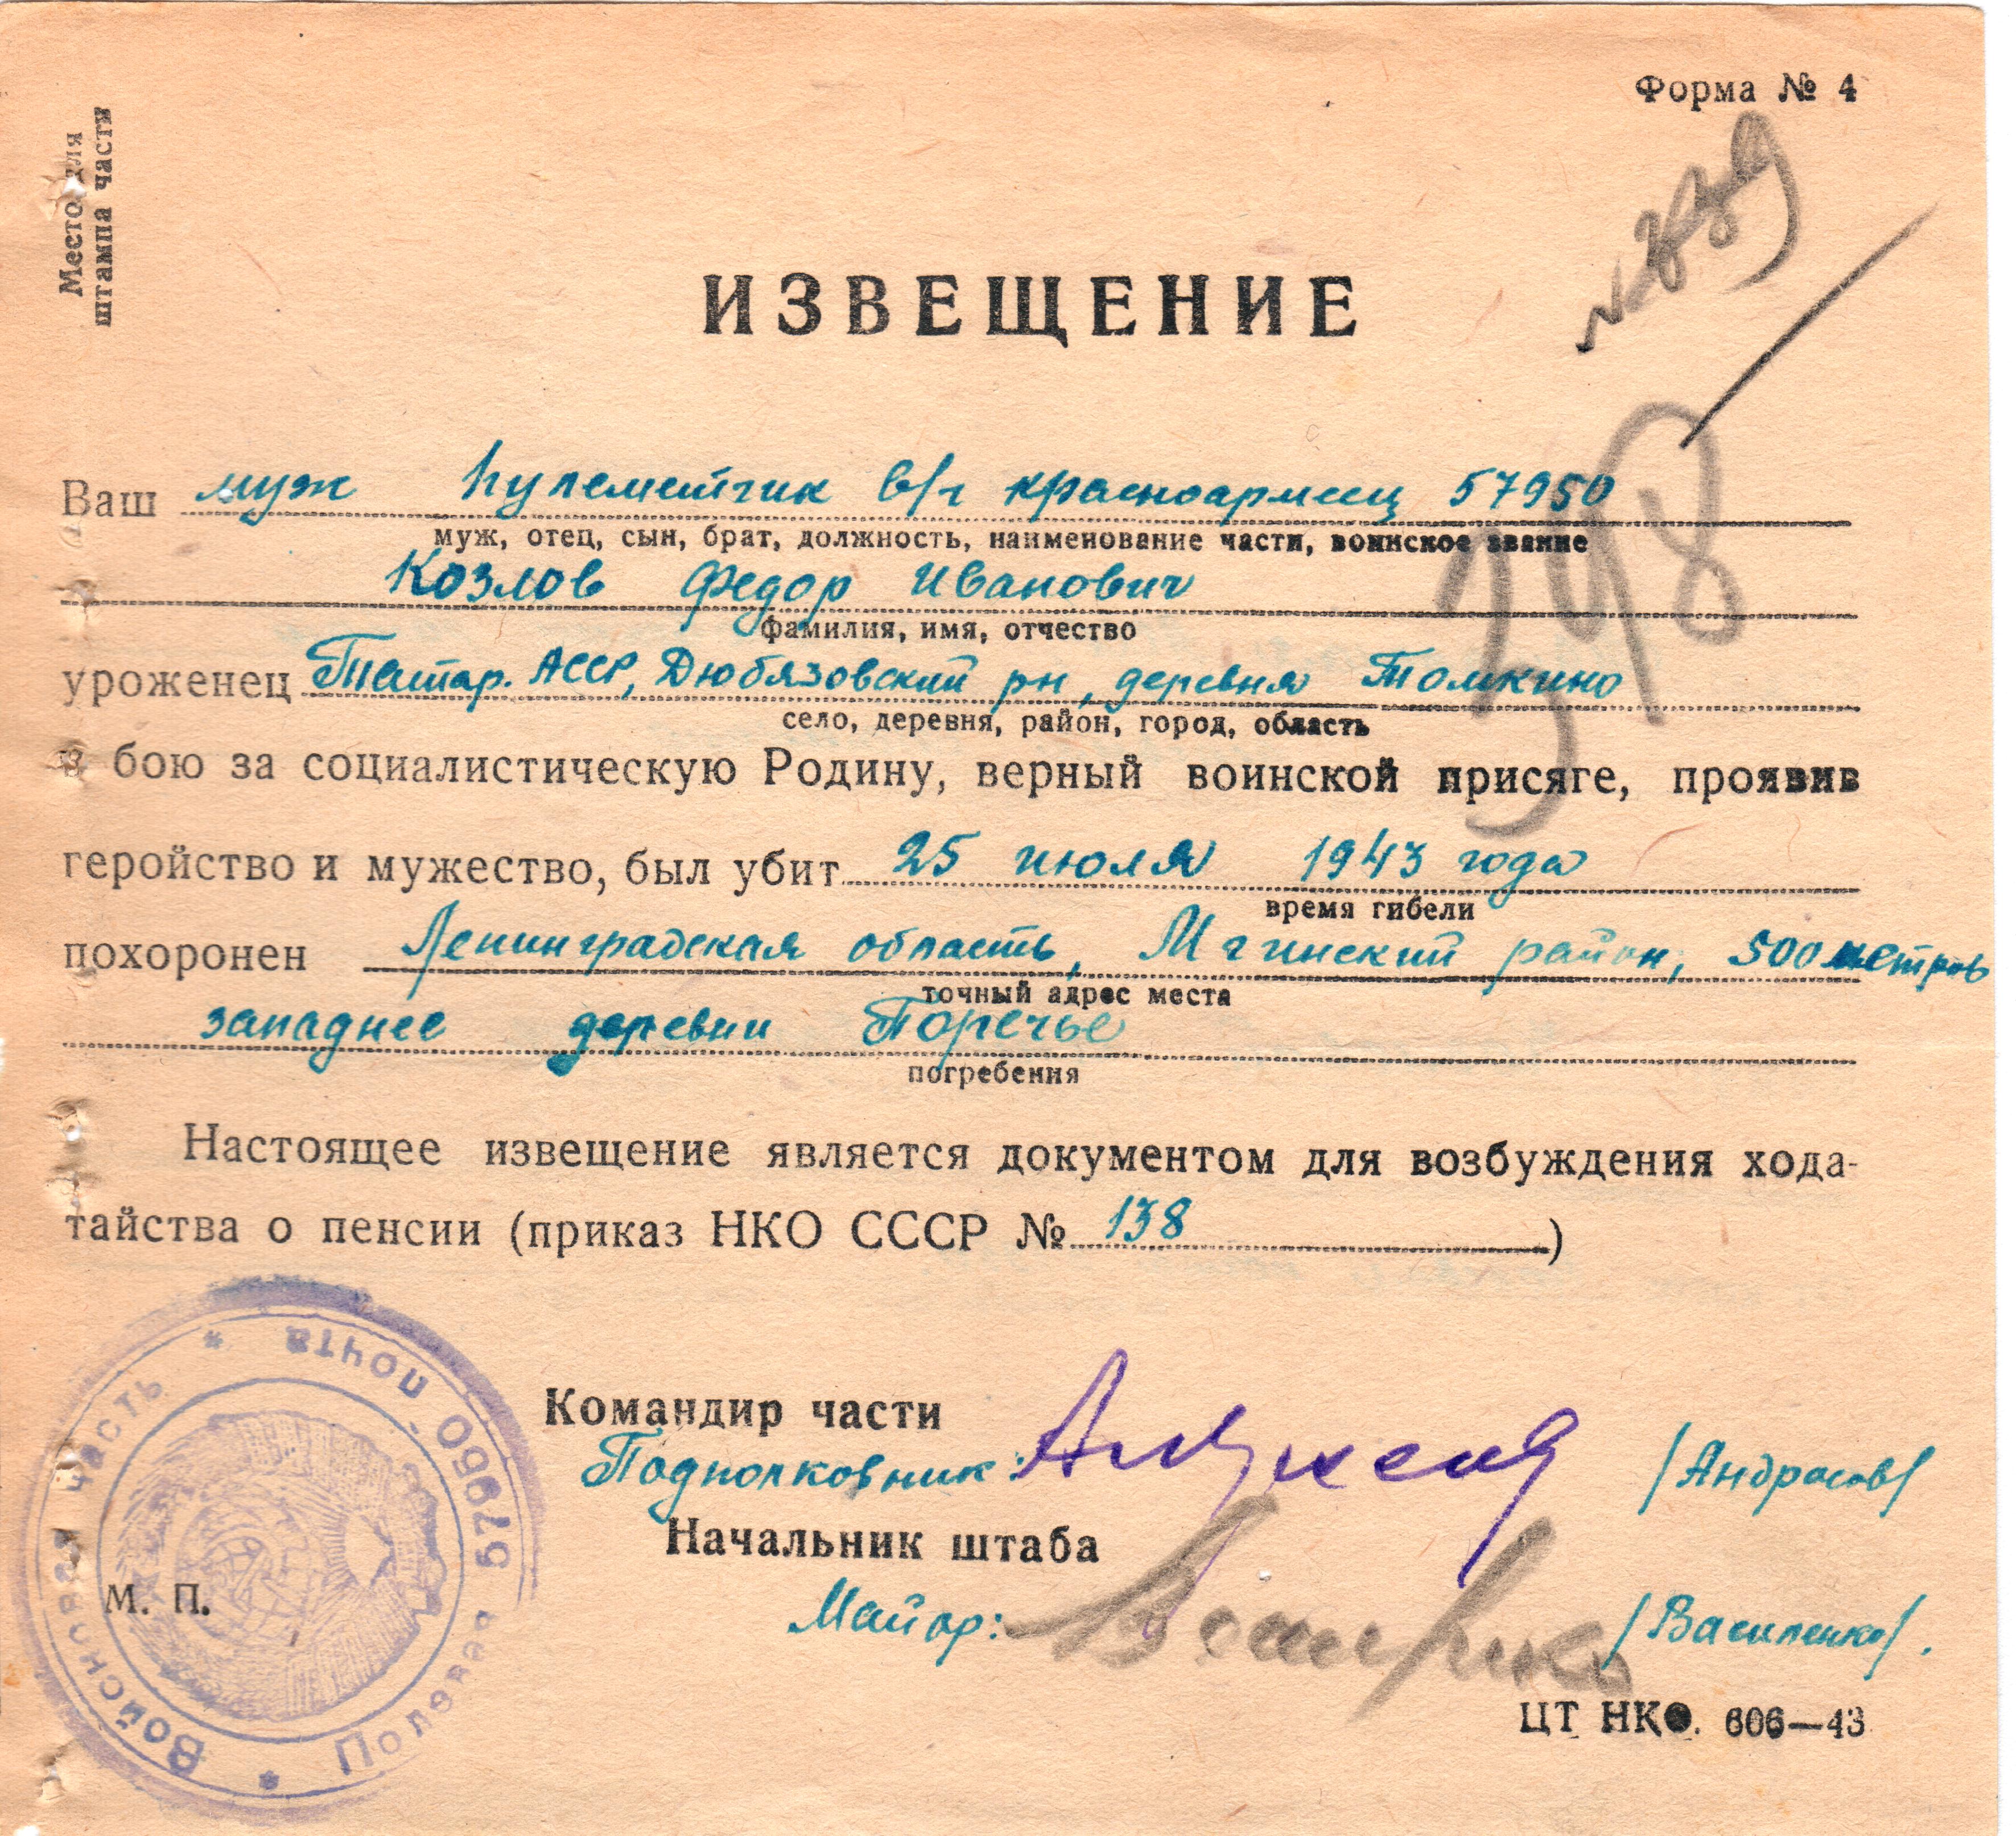 Форма № 4
Место для
штампа части
ИЗВЕЩЕНИЕ
398
Ваш муж пулеметчик в/ч красноармеец 57950
муж, отец, сын, брат, должность, наименование части, воинское звание
Козлов Федор Иванович
фамилия, имя, отчество
уроженец Татар. АССР, Дюбязовский рн, деревня Томкино
село, деревня, район, город, область
в бою за социалистическую Родину, верный воинской присяге, проявив
геройство и мужество, был убит 25 июля 1943 года
время гибели
похоронен Ленинградская область, Мгинский район, 500 метров
точный адрес места
западнее деревни Поречье
погребения
Настоящее извещение является документом для возбуждения хода-
тайства о пенсии (приказ НКО СССР № 138)
Командир части
Подполковник: /Андросов/
Начальник штаба
Майор: /Василенко/.
М. П.
Войсковая часть * Полевая почта 57950 *
ЦТ НКО. 606—43